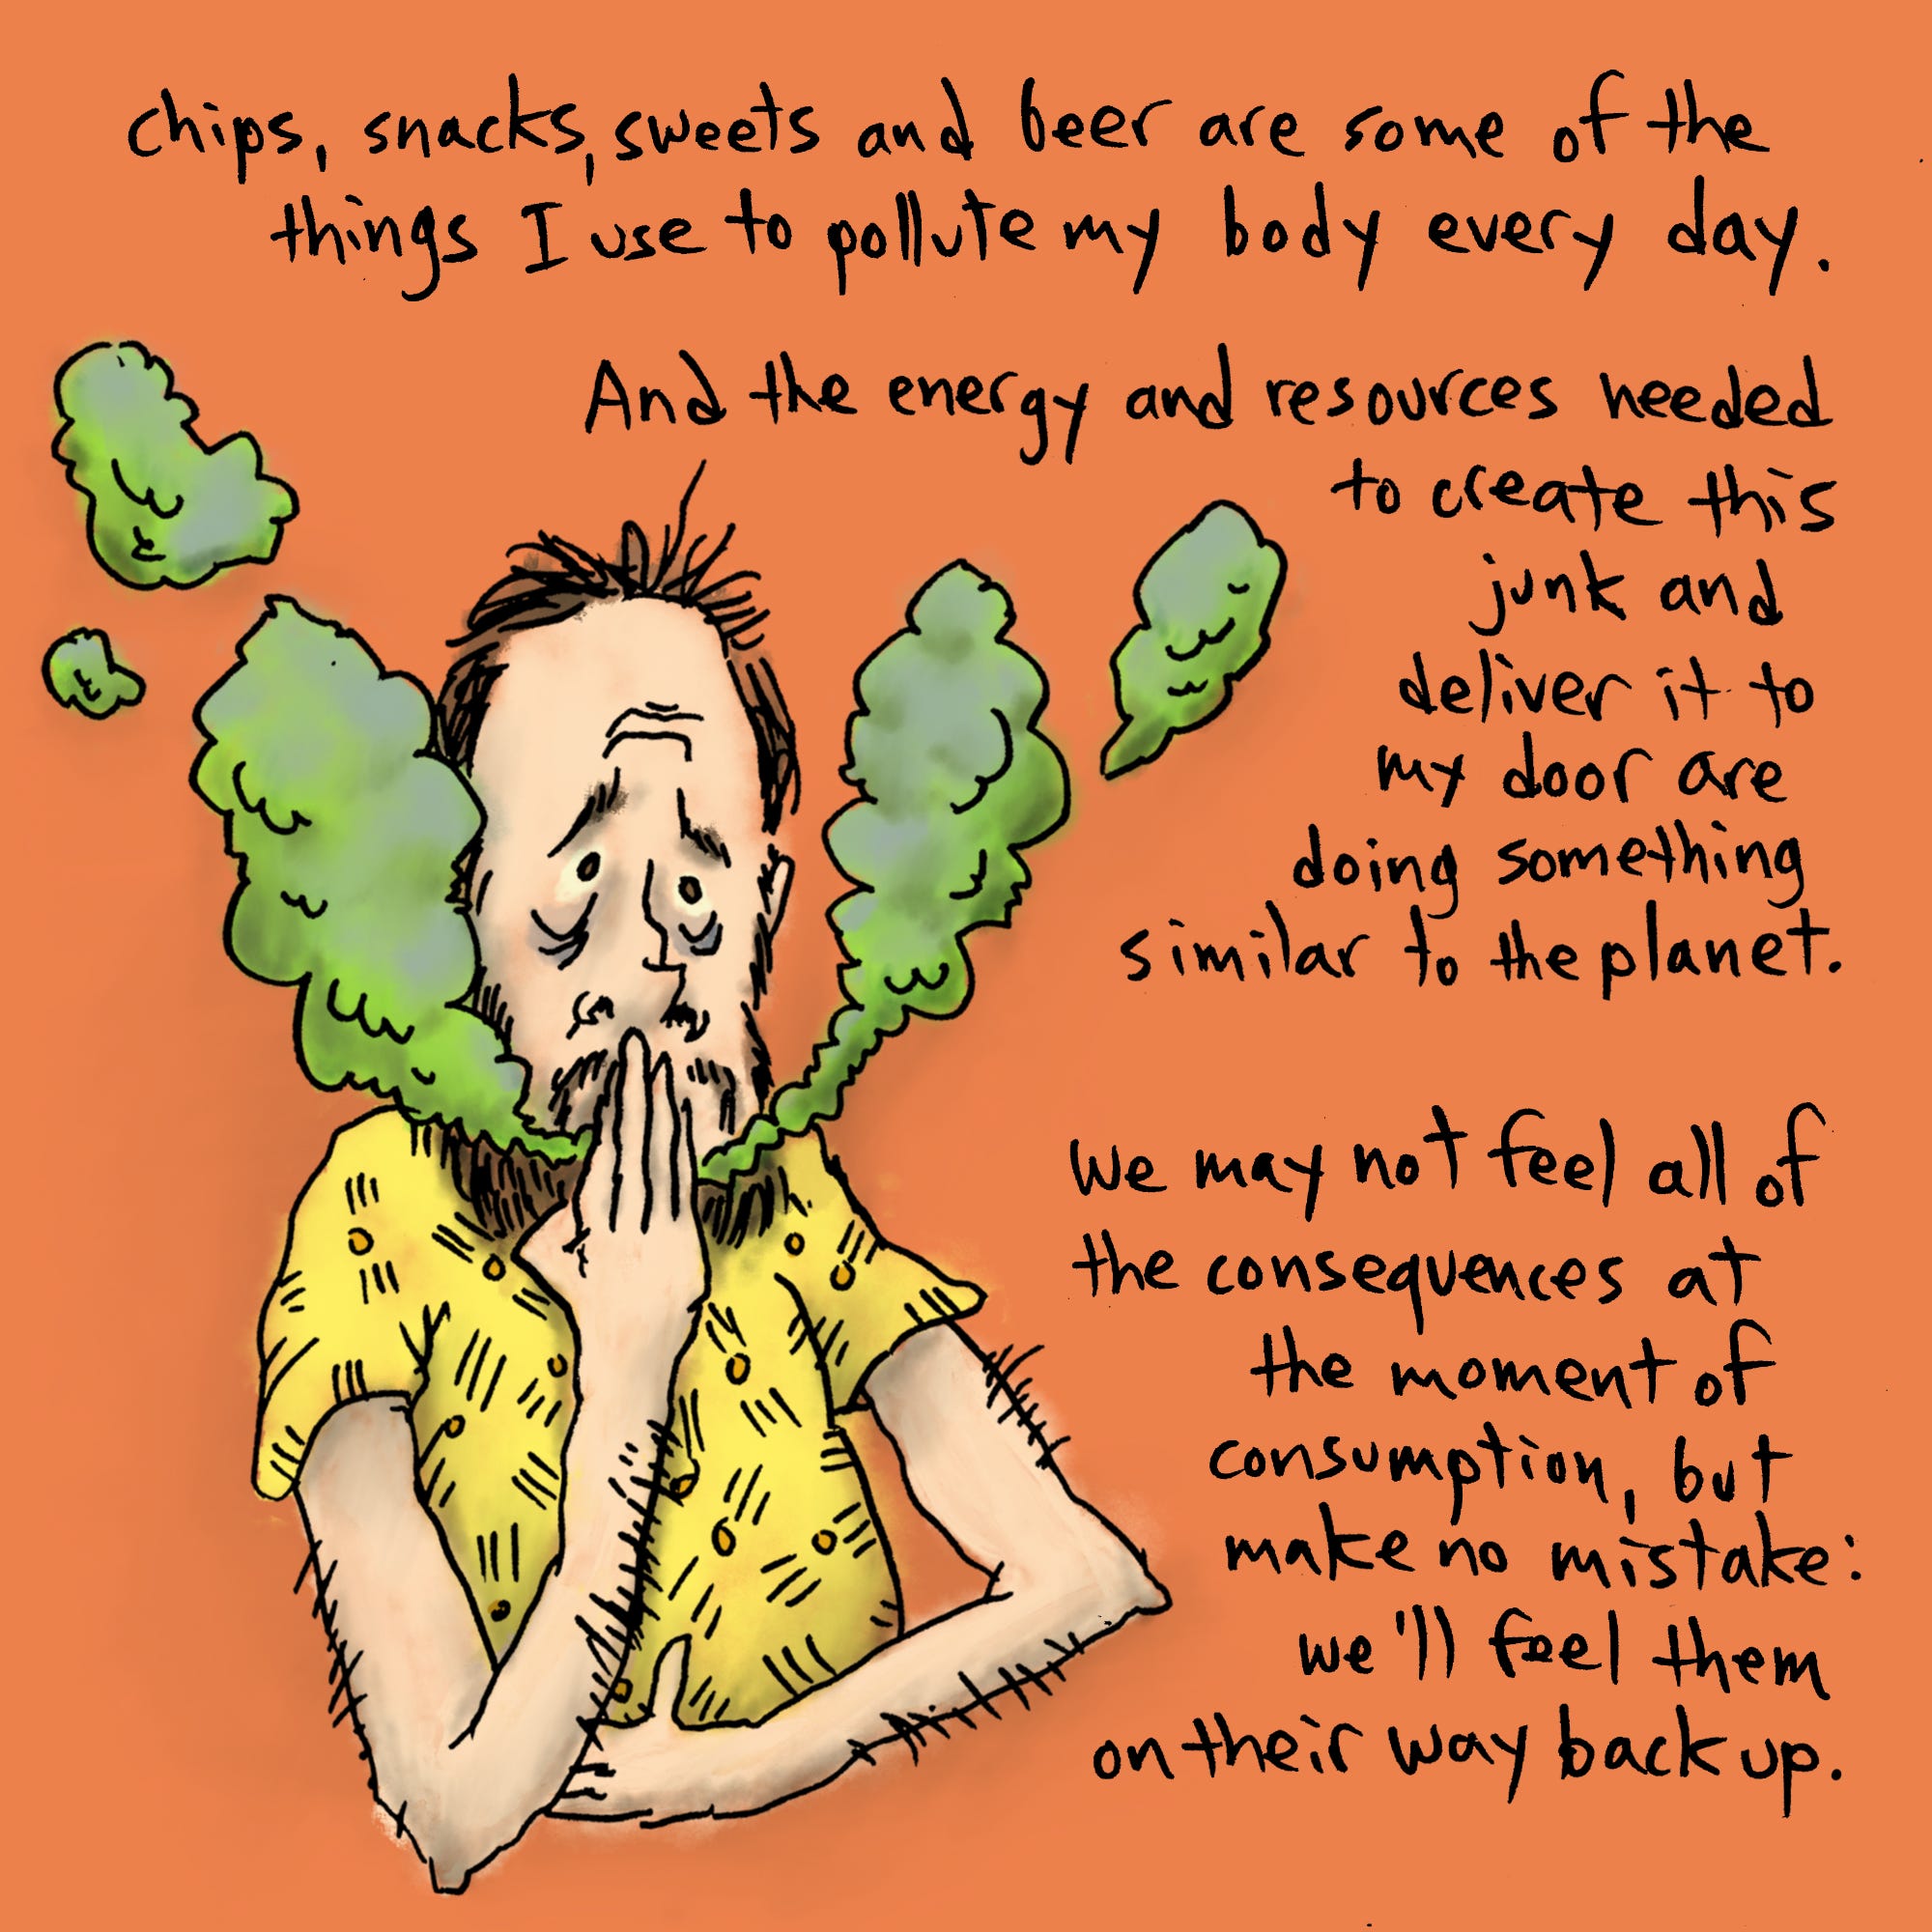 chips, snacks, sweets and beer are some of the
things I use to pollute my body every day.
And the energy and resources needed
to create this
junk and
deliver it to
my door are
doing something
similar to the planet.
We may not feel all of
the consequences at
the moment of
consumption, but
make no mistake:
we'll feel them
on their way back up.